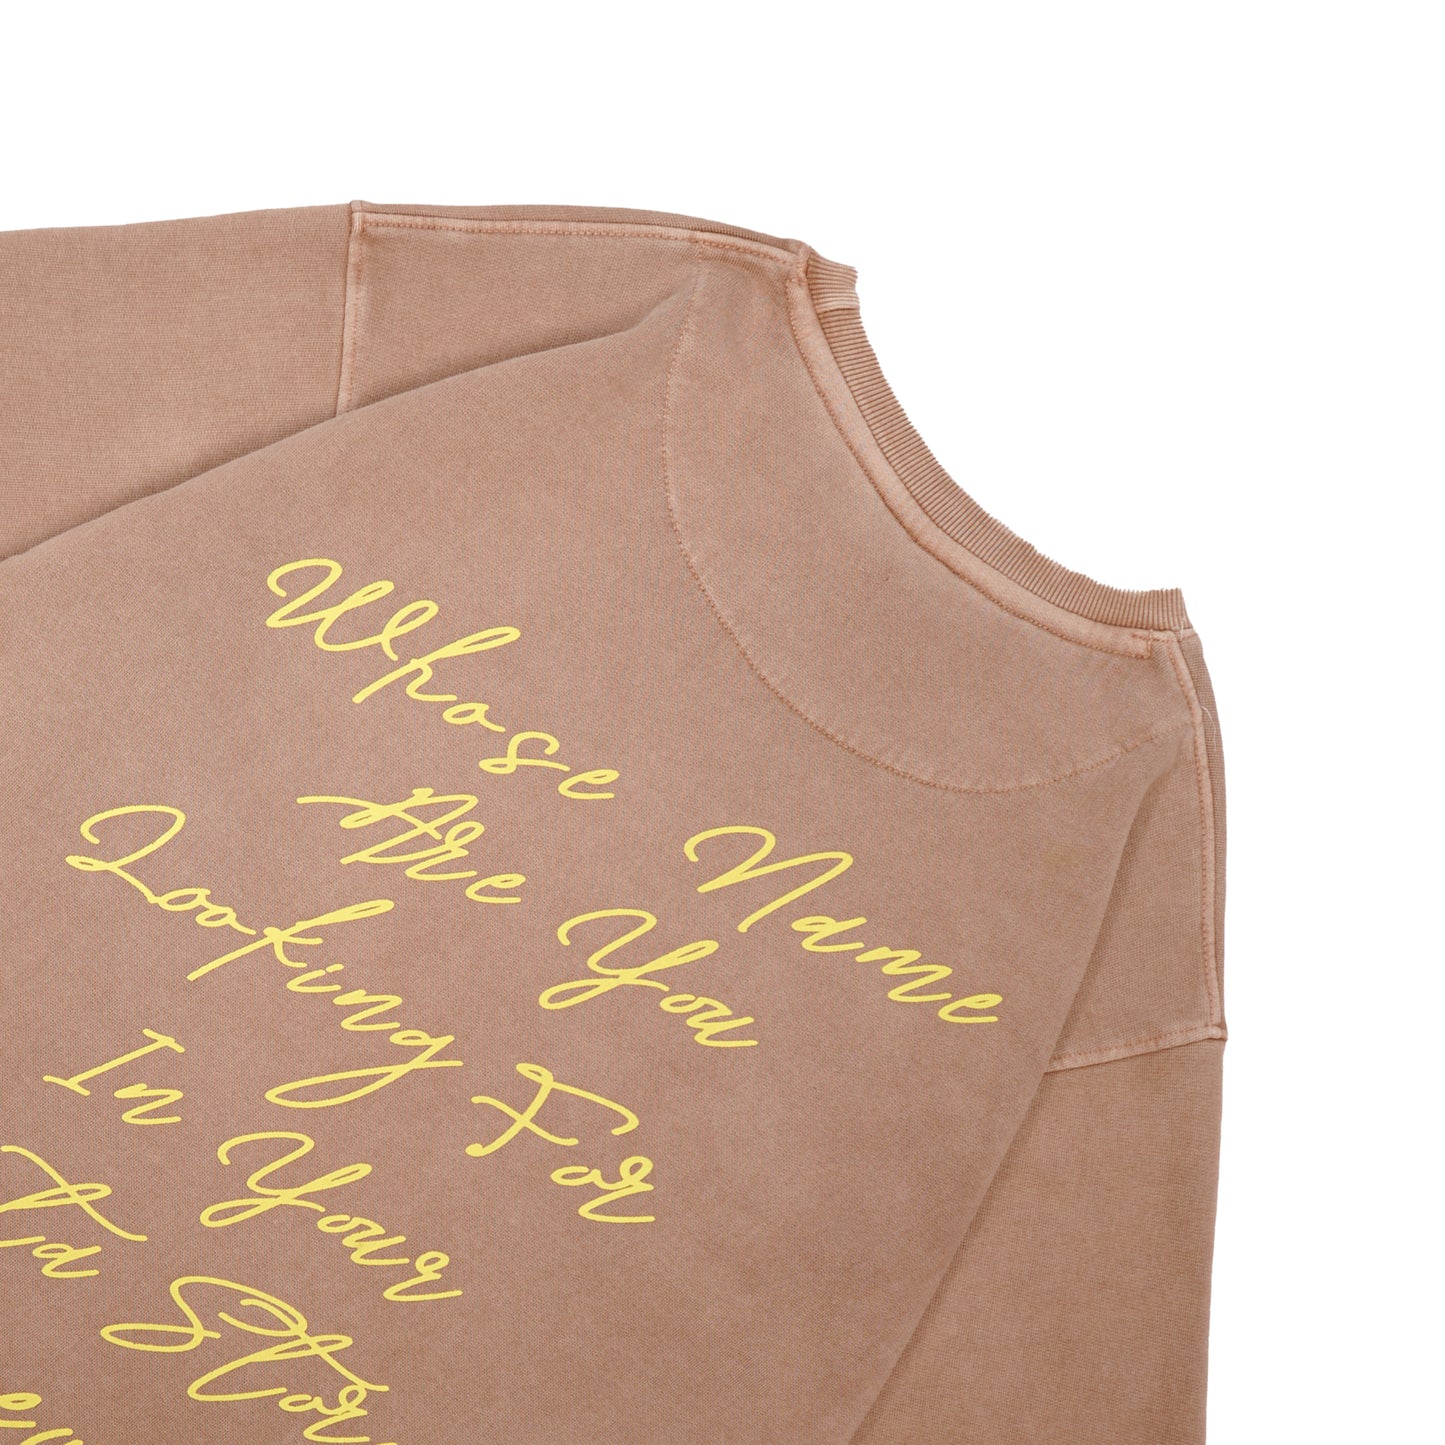 Whose Name
Are You
Looking For
In Your
Story